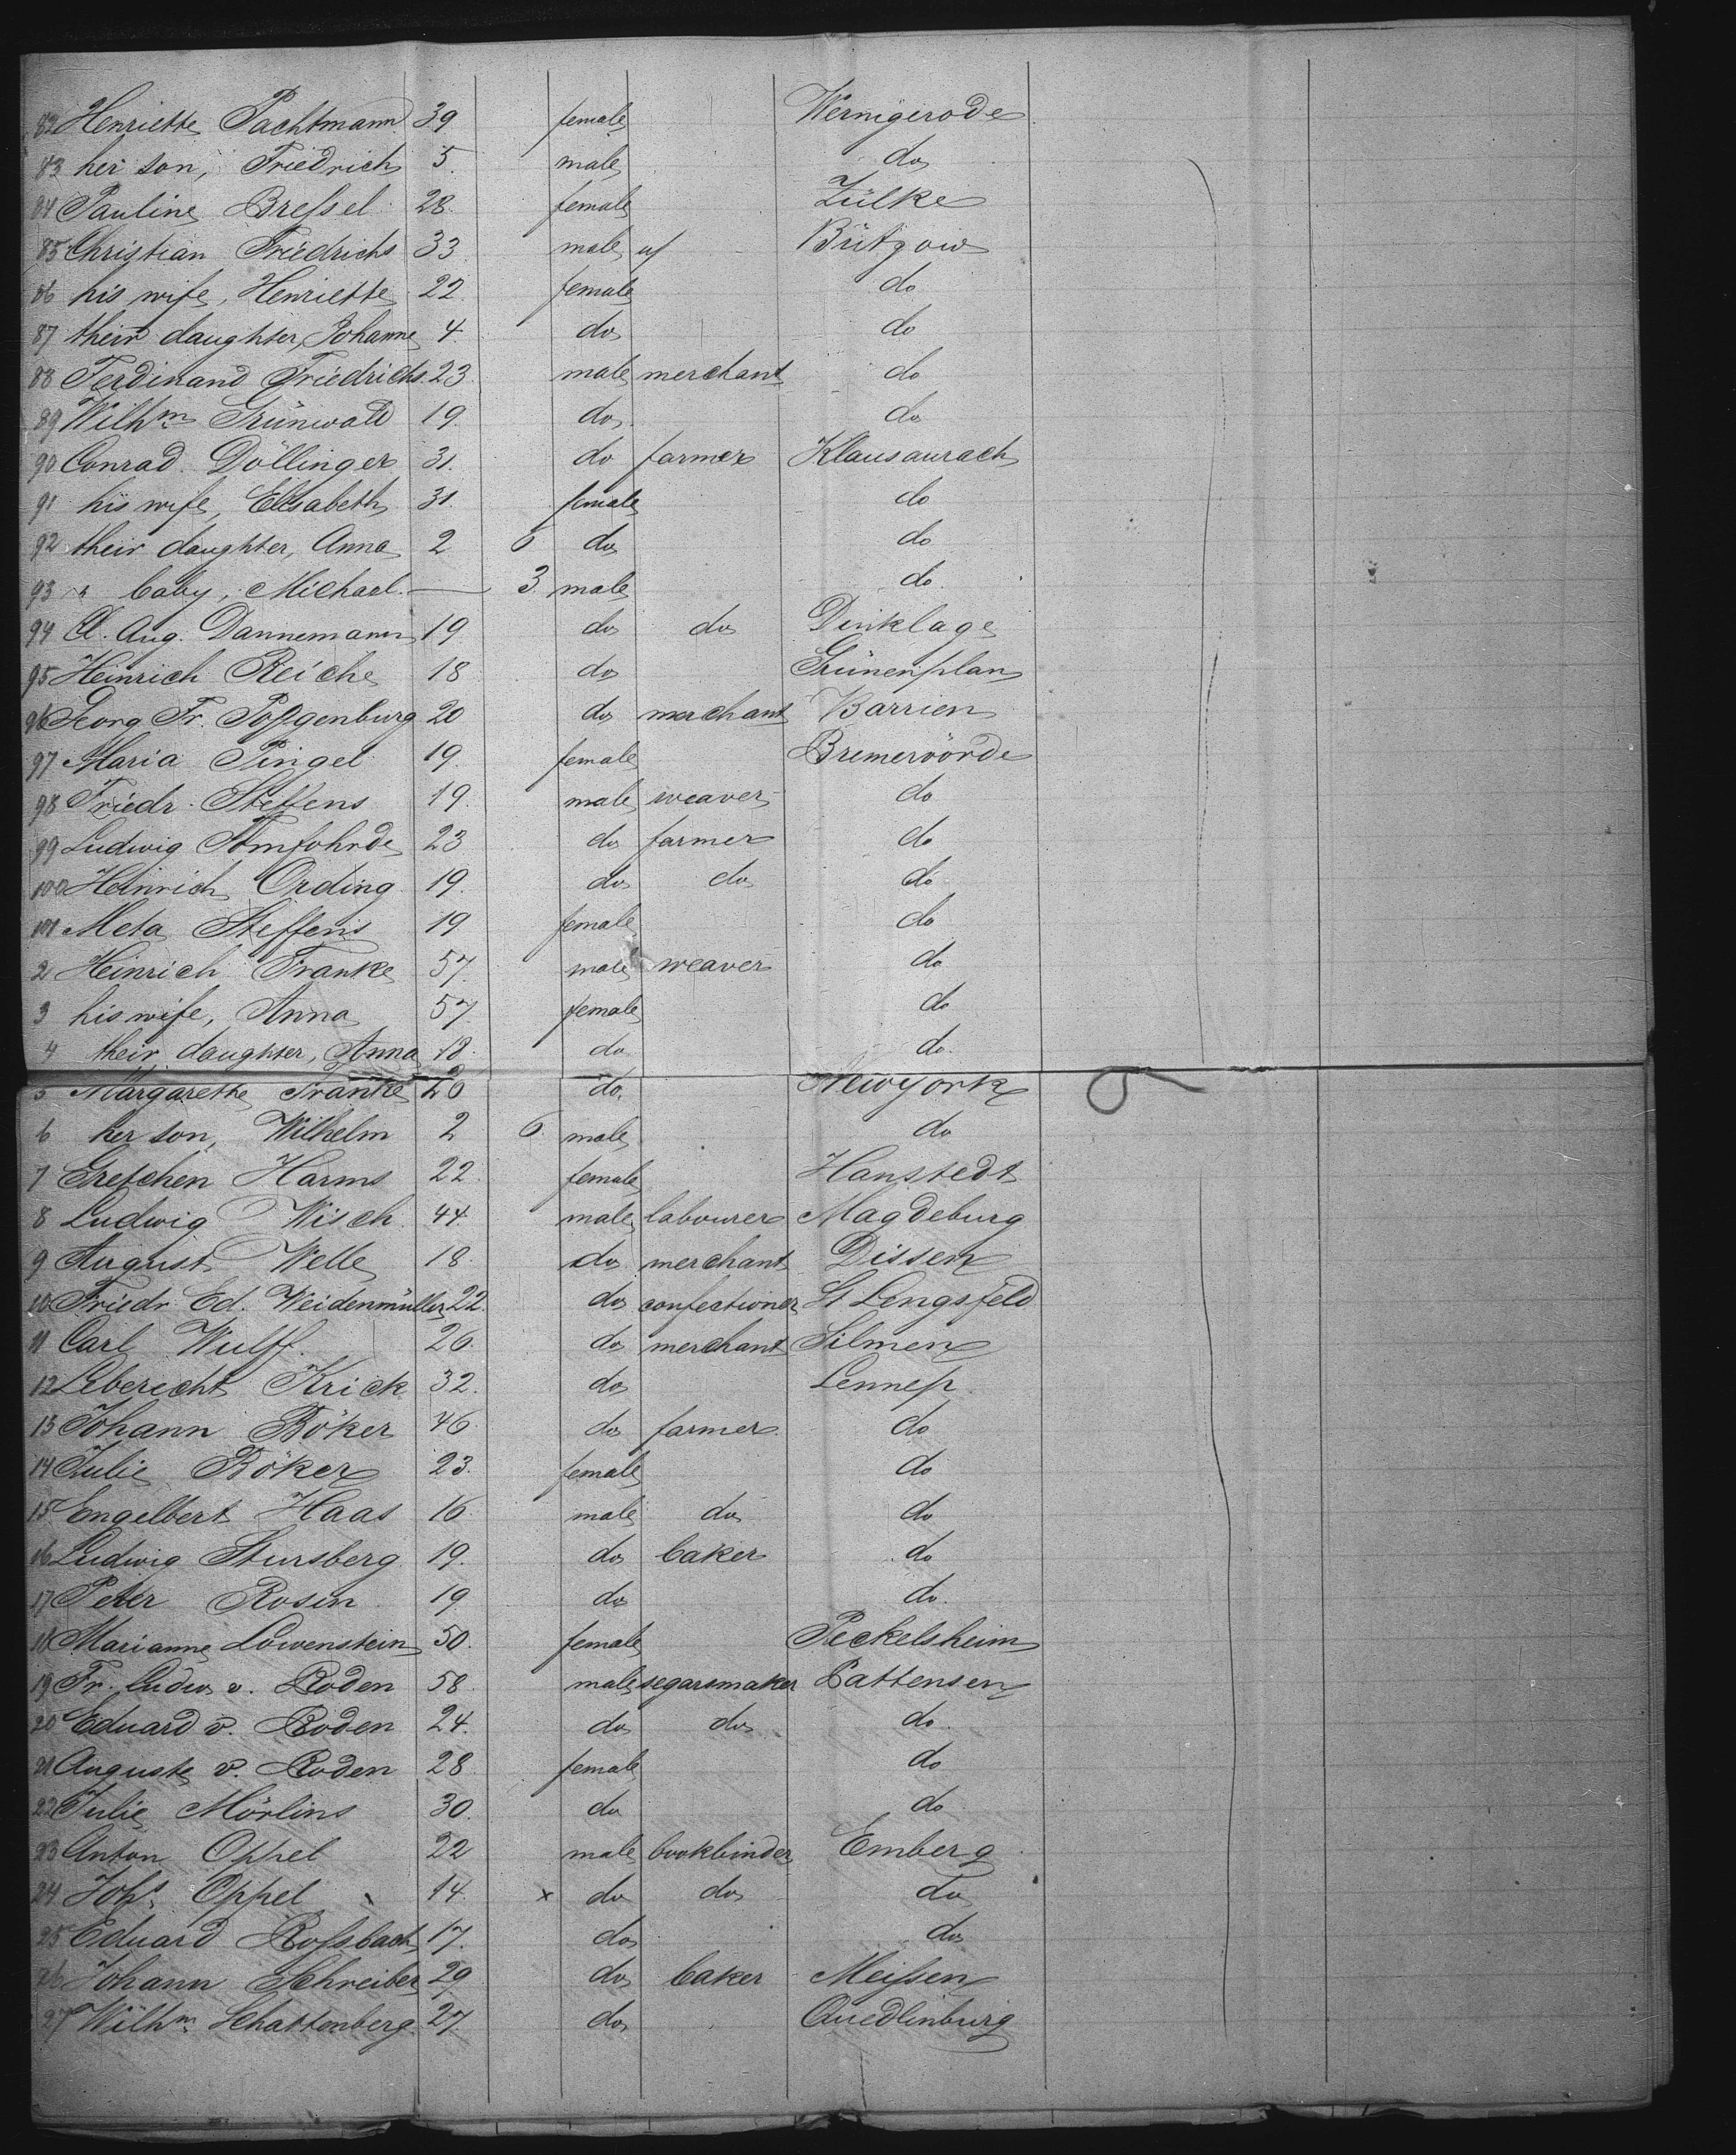 82 Henriette Pachtmann 39 female Wernigerode
83 her son, Friedrich 5. male do
84 Pauline Breſsel 28. female Zülke
85 Christian Friedrichs 33 male Bützow
86 his wife, Henriette 22 female do
87 their daughter, Johanne 4. do do
88 Ferdinand Friedrichs. 23. male merchant do
89 Wilhm Grünwald 19. do do
90 Conrad Döllinger 31. do farmer Klausaurach
91 his wife, Elisabeth 31. female do
92 their daughter, Anna 2 6 do do
93 " baby, Michael — 3 male do.
94 Cl. Aug. Dannemann 19 do do Dinklage
95 Heinrich Reiche 18 do Grünenplan
96 Georg Fr. Poggenburg 20 do merchant Barrien
97 Maria Pingel 19. female Bremervörde
98 Friedr. Steffens 19. male weaver do
99 Ludwig 23 do farmer do
100 Heinrich Ording 19. do do do
101 Meta Steffens 19 female do
2 Heinrich Franke 57. male weaver do
3 his wife, Anna 57 female do
4 their daughter, Anna 18. do do.
5 Margarethe Franke 20 do. Newyork
6 her son, Wilhelm 2 6. male do
7 Gretchen Harms 22. female Hanstedt
8 Ludwig Wisch 44 male labourer Magdeburg
9 August Welle 18. do merchant Dissen
10 Friedr. Ed. Weidenmüller 22. do confectioner St Lengsfeld
11 Carl Wulff. 26. do merchant Silmen
12 Leberecht Krick 32. do Lennep
13 Johann Böker 46. do farmer do
14 Julie Böker 23. female do
15 Engelbert Haas 16. male do do
16 Ludwig Stursberg 19. do baker do
17 Peter Rosin 19 do do.
18 Marianne Löwenstein 50. female Peckelsheim
19 Fr. Ludw. v. Roden 58. male segarsmaker Pattensen
20 Eduard v. Roden 24. do do do.
21 Auguste v. Roden 28 female do
22 Julie Mörlins 30. do do
23 Anton Oppel 22 male bookbinder Emberg
24 Johs. Oppel 14. x do do do
25 Eduard Roſsbach 17. do do
26 Johann Schreiber 29 do baker Meiſsen
27 Wilhm. Schattenberg. 27. do Quedlinburg